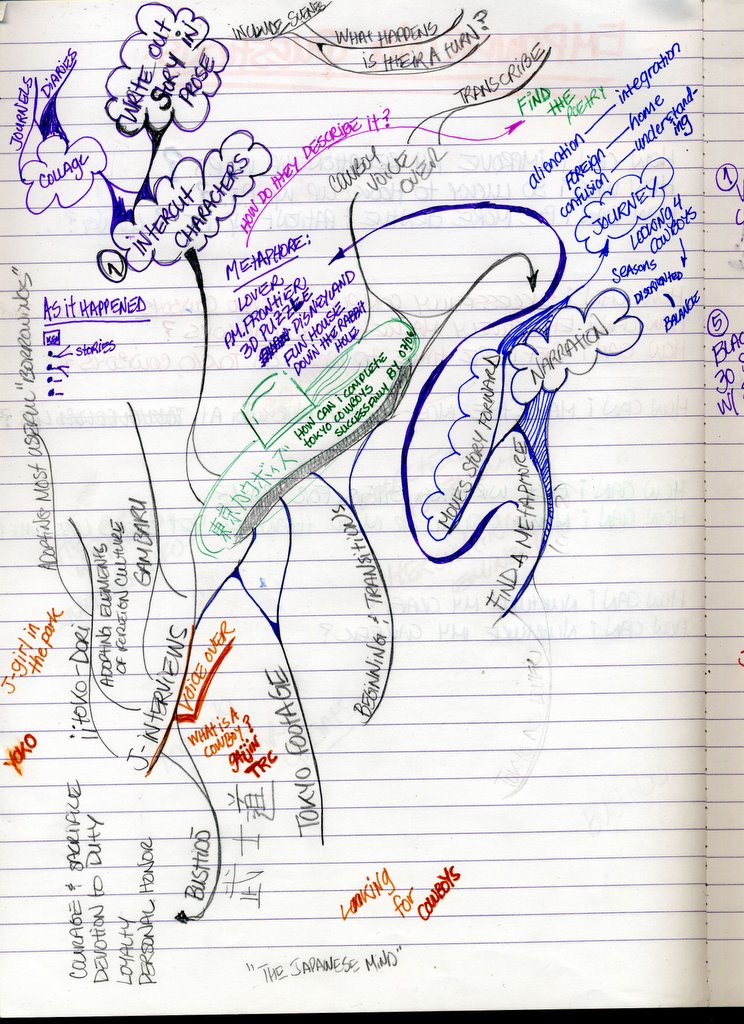 INCLUDE SCENES
WHAT HAPPENS
IS THEIR A TURN?
WRITE OUT
STORY IN
PROSE
JOURNELS
DIARIES
COLLAGE
②
INTERCUT
CHARACTERS
HOW DO THEY DESCRIBE IT?
COWBOY
VOICE
OVER
TRANSCRIBE
FIND THE POETRY
alienation — integration
FOREIGN — home
confusion — understand-
ing
JOURNEY
LOOKING 4
COWBOYS
SEASONS
DISORIENTED
BALANCE
METAPHORE:
LOVER
P.M. FRONTIER
3D PUZZLE
DISNEYLAND
FUN HOUSE
DOWN THE RABBIT
HOLE
AS it HAPPENED
STORIES
HOW CAN I COMPLETE
TOKYO COWBOYS
SUCCESSFULLY BY 07/06
東京カウボーイズ
NARRATION
MOVES STORY FORWARD
FIND A METAPHORE
BEGINNING & TRANSITIONS
ADOPTING MOST USEFUL "BORROWINGS"
IITOKO-DORI
ADOPTING ELEMENTS
OF FOREIGN CULTURE
GAMBARU
J-INTERVIEWS
VOICE OVER
WHAT IS A
COWBOY?
gaijin
TRC
TOKYO FOOTAGE
J-girl in
the park
YOKO
BUSHIDŌ
武士道
COURAGE & SACRIFICE
DEVOTION TO DUTY
LOYALTY
PERSONAL HONOR
LOOKING
for
COWBOYS
"THE JAPANESE MIND"
①
⑤
30
W/